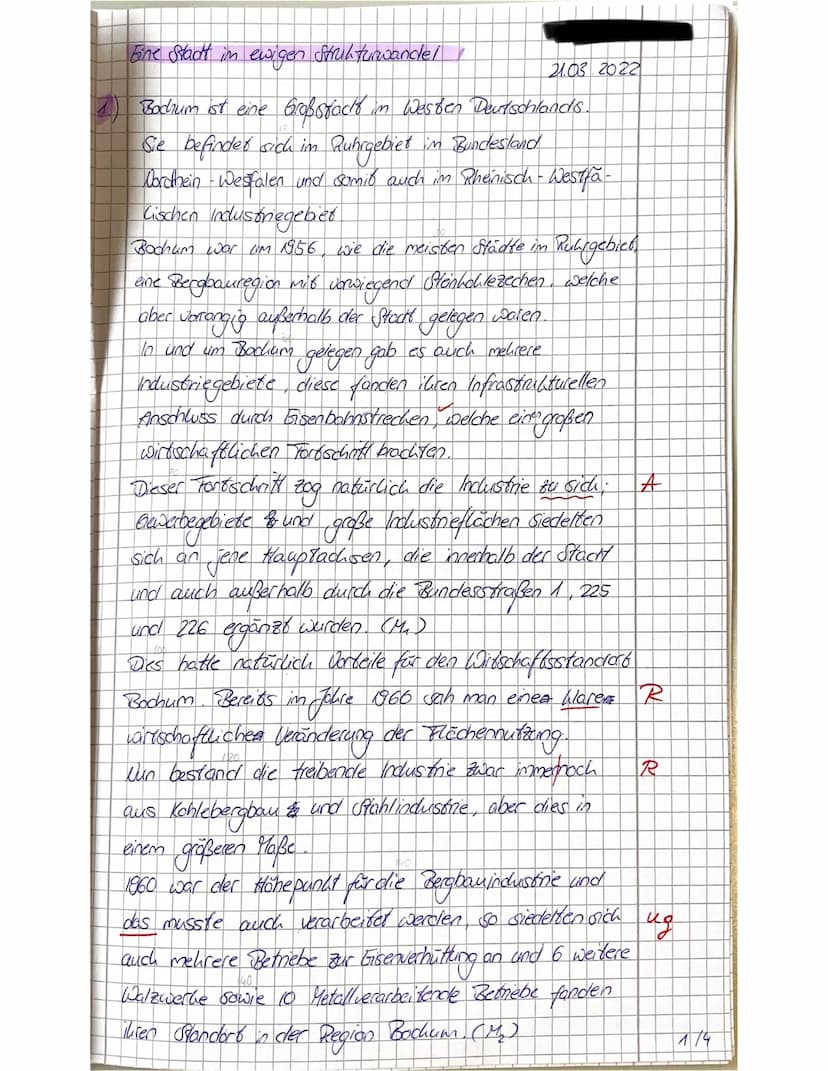 Eine Stadt im ewigen Strukturwandel
21.03.2022
1) Bochum ist eine Großstadt im Westen Deutschlands.
Sie befindet sich im Ruhrgebiet im Bundesland
Nordrhein-Westfalen und somit auch im Rheinisch-Westfä-
lischen Industriegebiet.
Bochum war um 1956, wie die meisten Städte im Ruhrgebiet,
eine Bergbauregion mit vorwiegend Steinkohlezechen, welche
aber vorrangig außerhalb der Stadt gelegen waren.
In und um Bochum gelegen gab es auch mehrere
Industriegebiete, diese fanden ihren Infrastrukturellen
Anschluss durch Eisenbahnstrecken, welche einen großen
wirtschaftlichen Fortschritt brachten.
Dieser Fortschritt zog natürlich die Industrie zu sich; A
Gewerbegebiete und große Industrieflächen siedelten
sich an jene Hauptachsen, die innerhalb der Stadt
und auch außerhalb durch die Bundesstraßen 1, 225
und 226 ergänzt wurden. (M1)
Dies hatte natürlich Vorteile für den Wirtschaftsstandort
Bochum. Bereits im Jahre 1960 sah man eine klare R
wirtschaftliche Veränderung der Flächennutzung.
Nun bestand die treibende Industrie zwar immernoch R
aus Kohlebergbau und Stahlindustrie, aber dies in
einem größeren Maße.
1960 war der Höhepunkt für die Bergbauindustrie und
das musste auch verarbeitet werden, so siedelten sich ug
auch mehrere Betriebe zur Eisenverhüttung an und 6 weitere
Walzwerke sowie 10 Metallverarbeitende Betriebe fanden
ihren Standort in der Region Bochum. (M2)
1/4